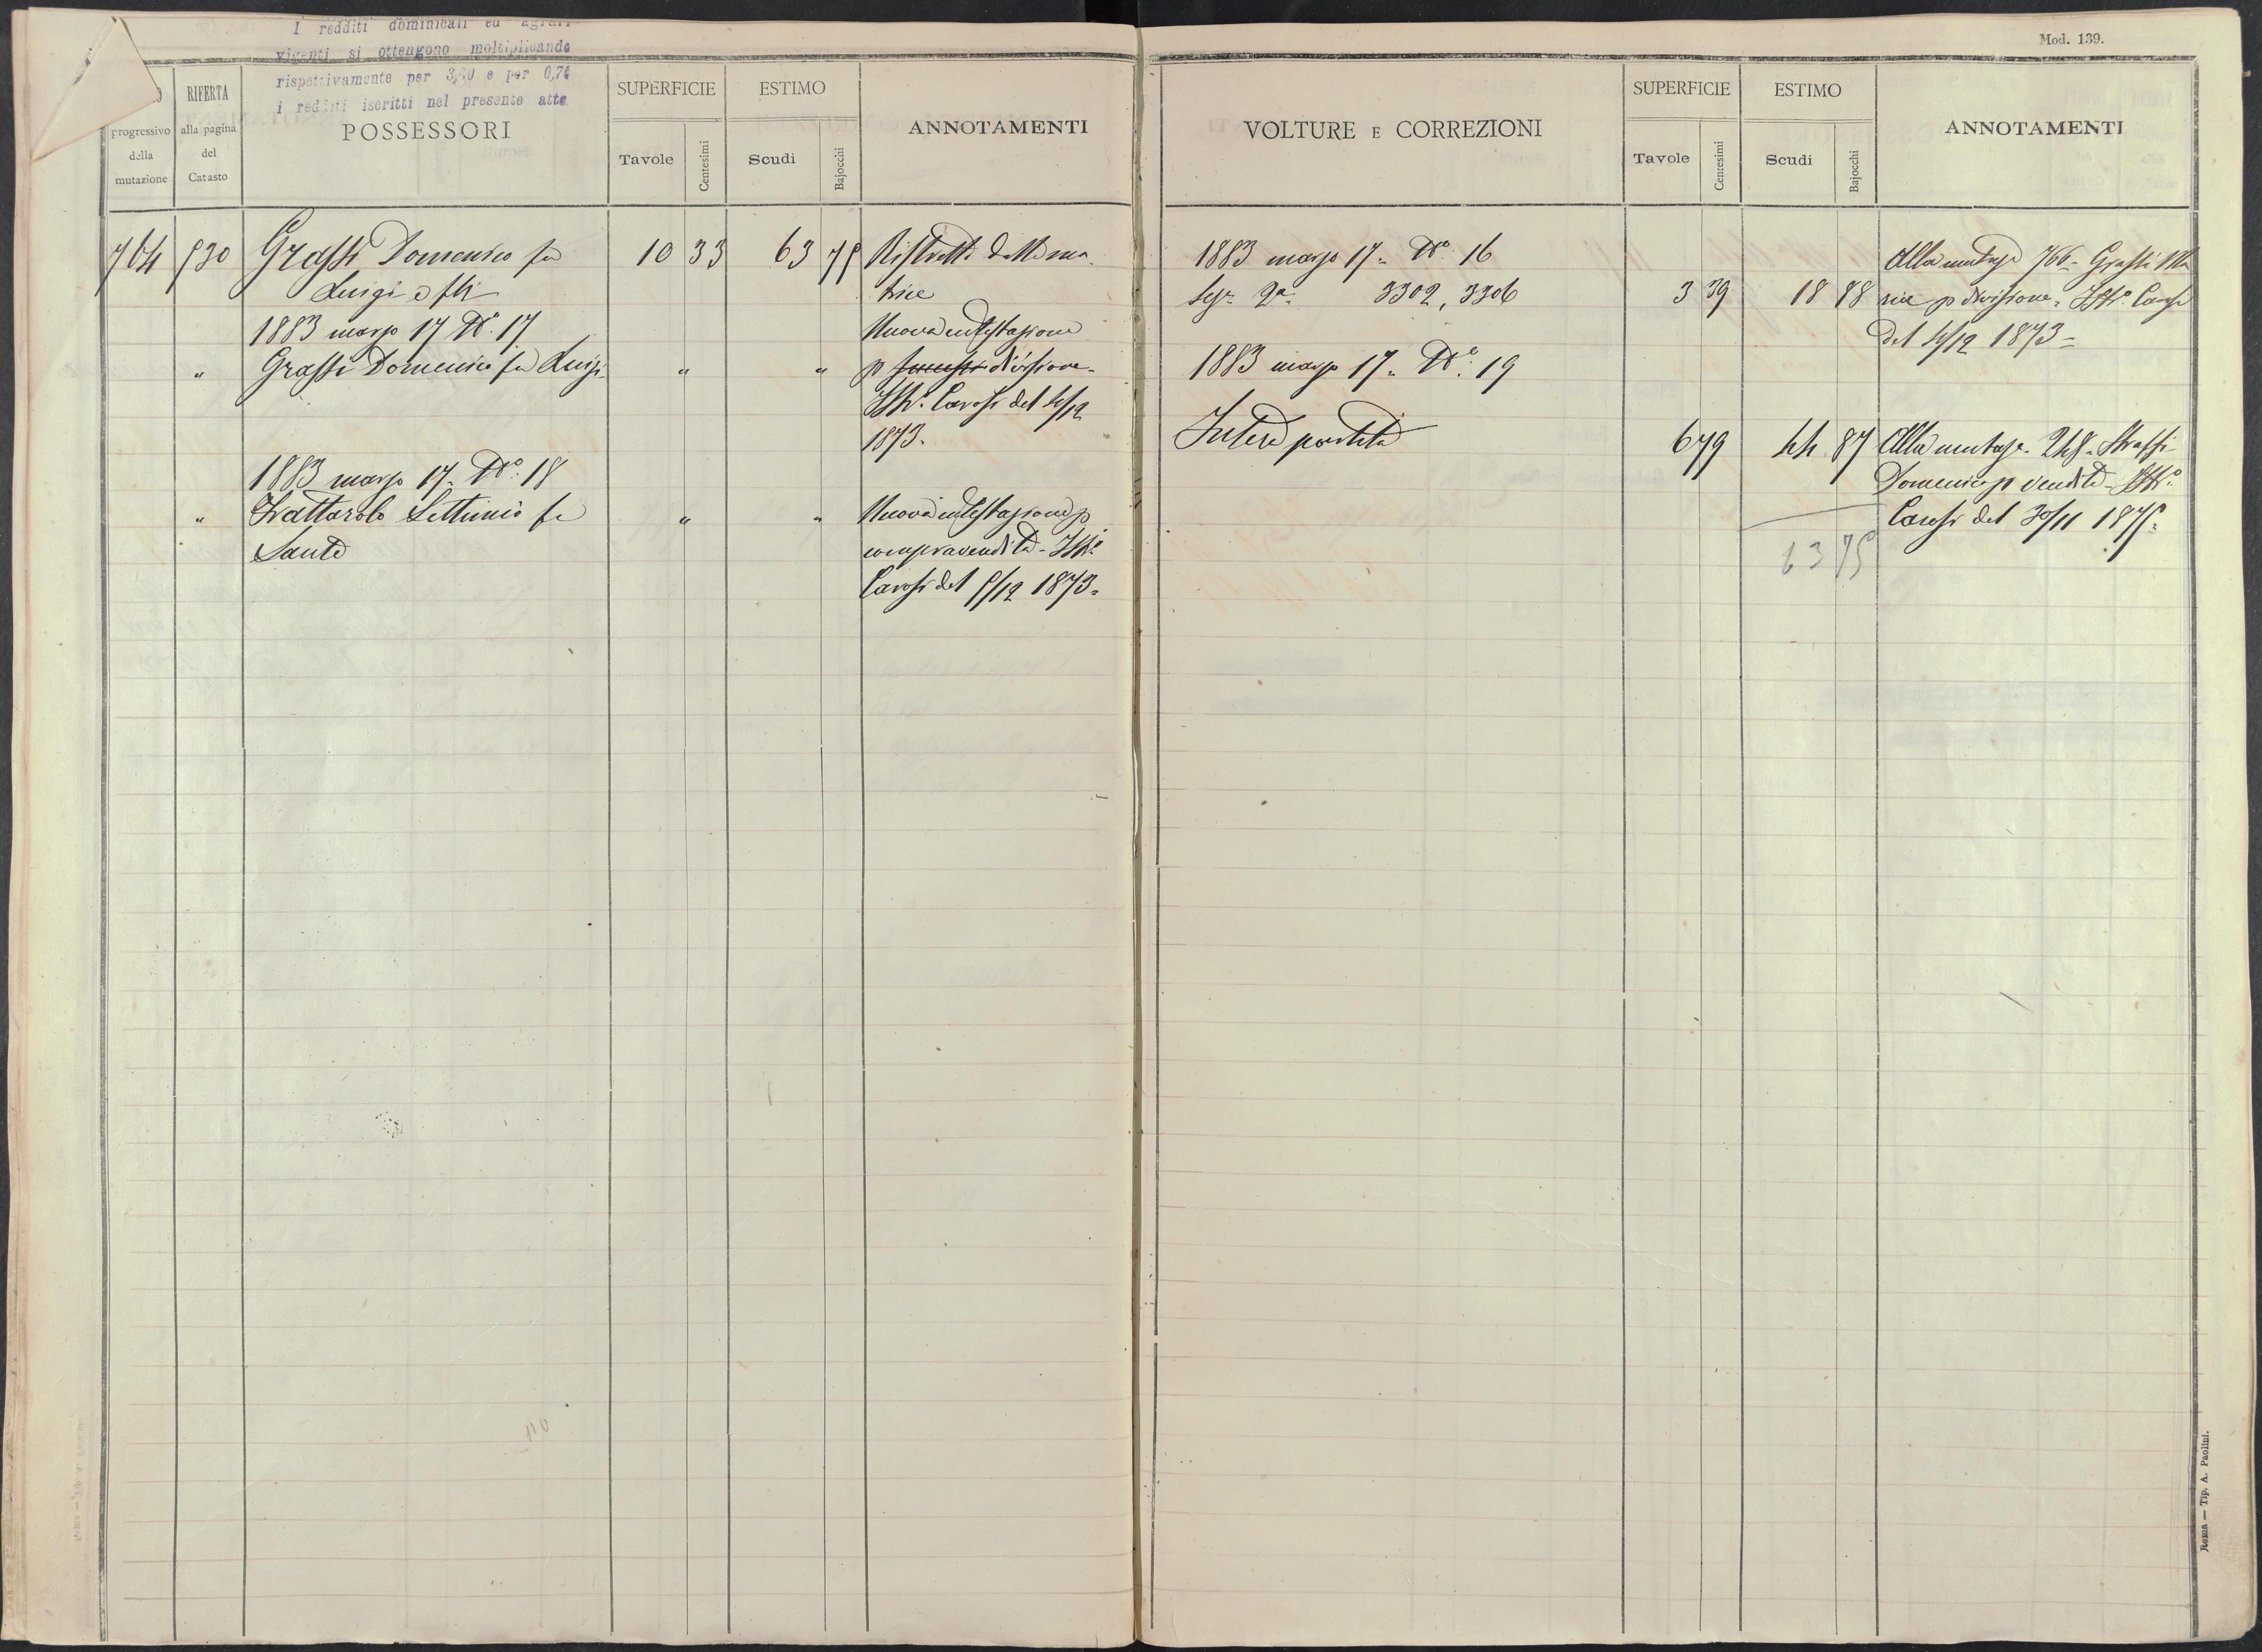 I redditi dominicali ed agrari
vigenti si ottengono moltiplicando
rispettivamente per 3,50 e per 0,70
i redditi iscritti nel presente atto
progressivo
della
mutazione
RIFERTA
alla pagina
del
Catasto
POSSESSORI
SUPERFICIE
Tavole
Centesimi
ESTIMO
Scudi
Bajocchi
ANNOTAMENTI
764 530 Grassi Domenico fu 10 33 63 75 Ristretto della ma-
Luigi e flli trice
1883 marzo 17 N.° 17 Nuova intestazione
" Grassi Domenico fu Luigi " " p divisione -
Istr.° Carosi del 4/12
1873.
1883 marzo 17. N.° 18
" Trattarolo Settimio fu " " Nuova intestazione p
Sante compravendita - Istr.°
Carosi del 5/12 1873.
Mod. 139.
VOLTURE E CORREZIONI
SUPERFICIE
Tavole
Centesimi
ESTIMO
Scudi
Bajocchi
ANNOTAMENTI
1883 marzo 17. N.° 16 Alla mutaz.e 766 - Grassi Ma
Sez.e 2a 3302, 3306 3 39 18 88 ria p divisione. Istr.° Carosi
del 4/12 1873 =
1883 marzo 17. N.° 19
Intera partita 6 79 44 87 Alla mutaz.e 248.
Domenico p vendita - Istr.°
Carosi del 30/11 1875.
63 75
Roma — Tip. A. Paolini.